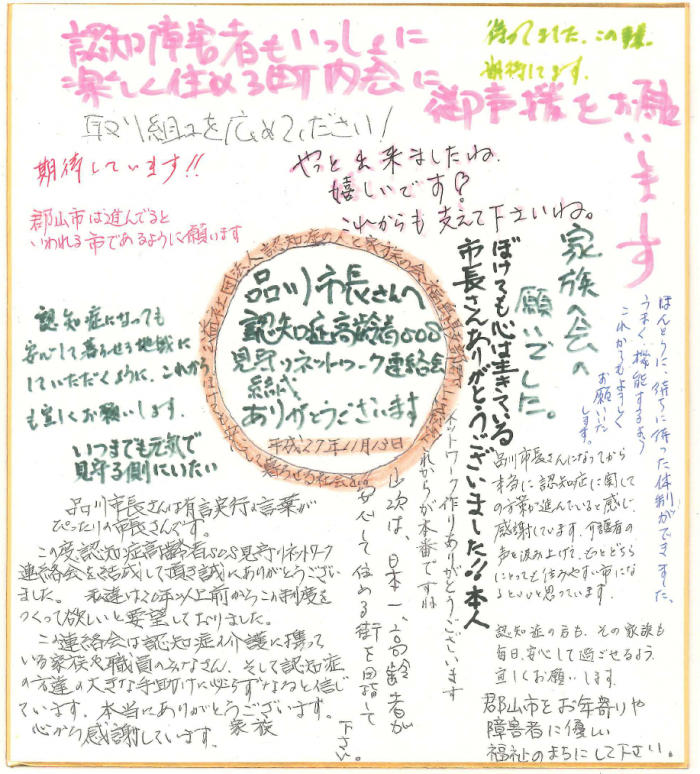 認知障害者もいっしょに
楽しく住める町内会に
御声援をお願いします
待ってました。この
期待してます。
取り組みを広めてください！
期待しています!!
やっと出来ましたね。
嬉しいです
これからも支えて下さいね。
郡山市は進んでると
いわれる市であるように願います
家族会の
願いでした。
ぼけても心は生きている
市長さんありがとうございました!! 本人
ほんとうに、待ちに待った体制ができました。
うまく機能するよう
これからもよろしく
お願いいた
します。
公益社団法人認知症の人と家族の会福島県
暮らせる社会を
品川市長さんへ
認知症高齢者SOS
見守りネットワーク連絡会
結成
ありがとうございます
平成27年11月13日
認知症になっても
安心して暮らせる地域に
していただくように、これから
も宜しくお願いします。
いつまでも元気で
見守る側にいたい
ネットワーク作りありがとうございます
これからが本番ですね
次は、日本一、高齢者が
安心して住める街を目指して
下さい。
品川市長さんになってから
本当に認知症に関して
の方策が進んでいると感じ
感謝しています。介護者の
声を汲み上げて、もっとどちら
にとっても住みやすい市にな
るといいと思っています。
認知症の方も、その家族も
毎日、安心して過ごせるよう、
宜しくお願いします。
郡山市をお年寄りや
障害者に優しい
福祉のまちにして下さい。
品川市長さんは有言実行の言葉が
ぴったりの市長さんです。
この度認知症高齢者SOS見守りネットワーク
連絡会を結成して頂き誠にありがとうござい
ました。私達は20年以上前からこの制度を
つくって欲しいと要望しておりました。
この連絡会は認知症の介護に携って
いる家族や職員のみなさん、そして認知症
の方達の大きな手助けに必らずなると信じ
ています。本当にありがとうございます。
心から感謝しています。 家族